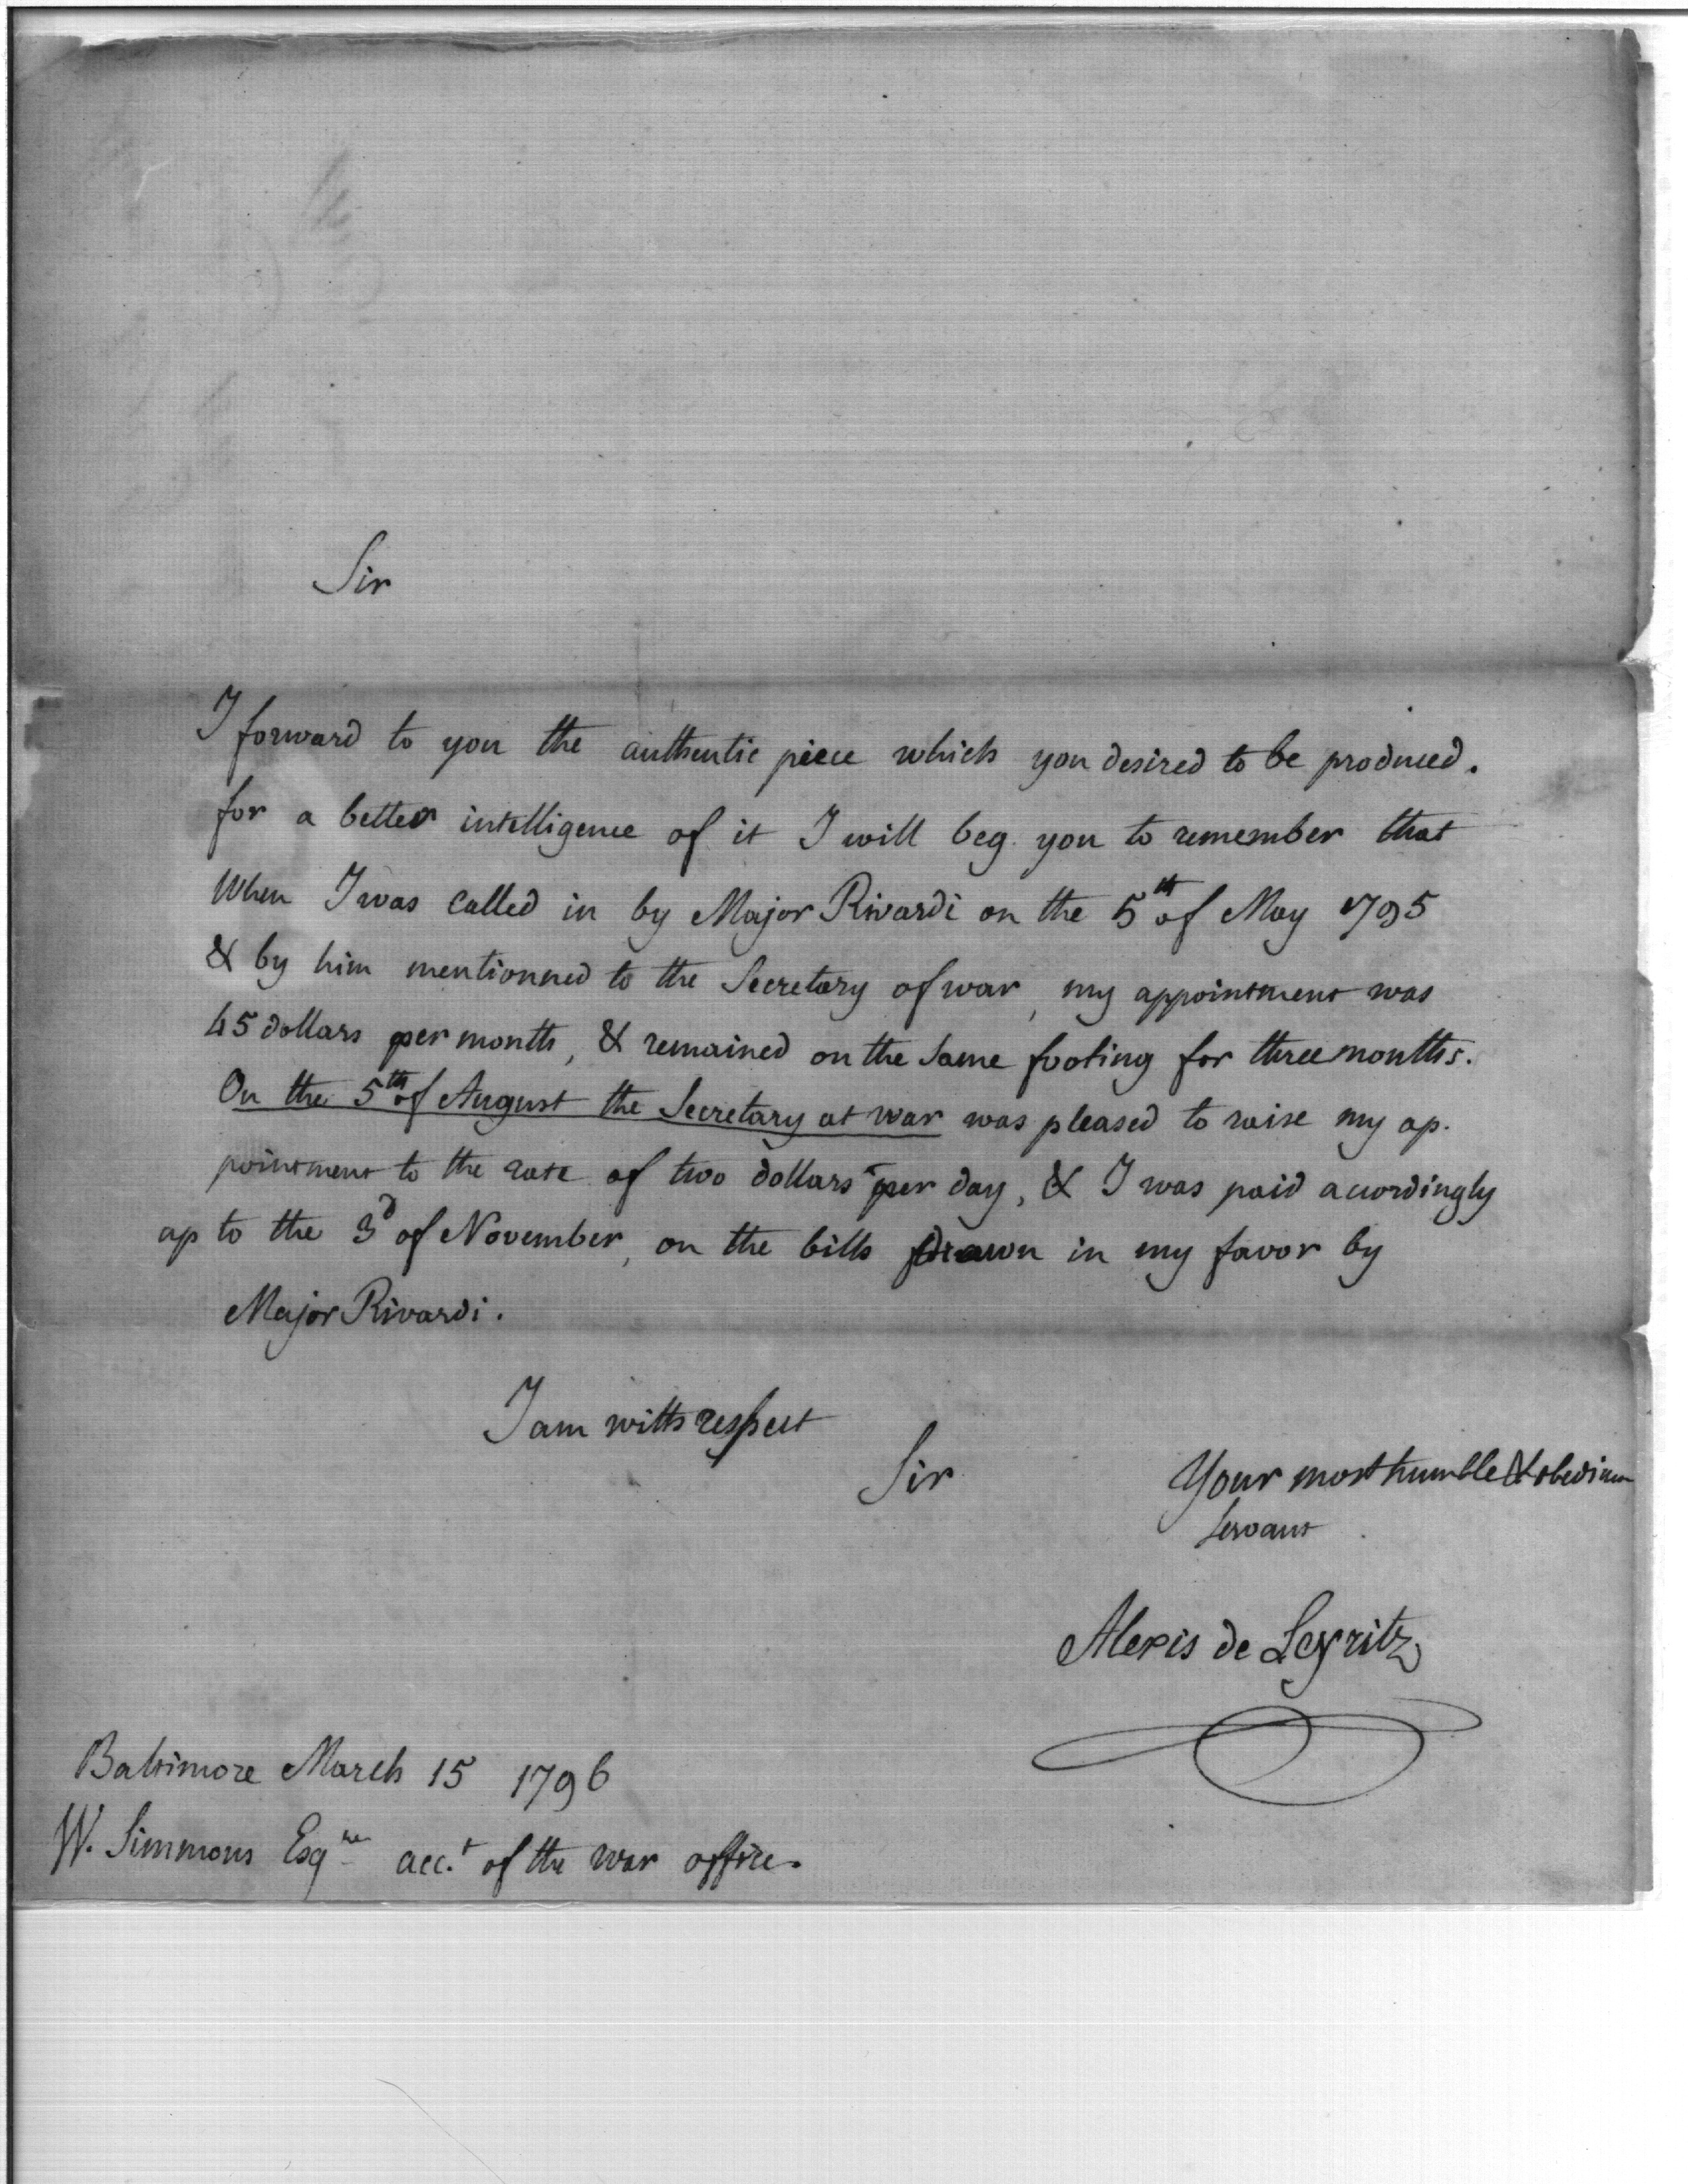 Sir
I forward to you the authentic piece which you desired to be produced.
for a better intelligence of it I will beg you to remember that
When I was called in by Major Rivardi on the 5th of May 1795
& by him mentionned to the Secretary of war, my appointment was
45 dollars per month, & remained on the same footing for three months.
On the 5th of August the Secretary at war was pleased to raise my ap.
pointment to the rate of two dollars per day, & I was paid acordingly
up to the 3d of November, on the bills drawn in my favor by
Major Rivardi.
I am with respect
Sir
Your most humble & obedient
Servant
Alexis de
Baltimore March 15 1796
W. Simmons Esqre acct of the war office.